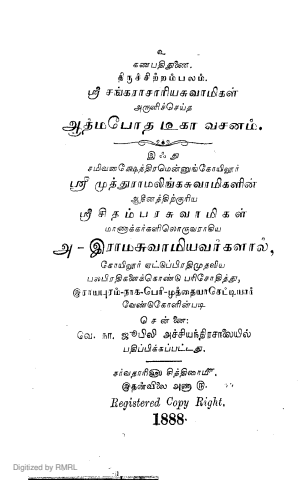 உ
கணபதிதுணை.
திருச்சிற்றம்பலம்.
ஸ்ரீ சங்கராசாரியசுவாமிகள்
அருளிச்செய்த
ஆத்மபோத டீகா வசனம்.
இஃது
சமிவனக்ஷேத்திரமென்னுங்கோயிலூர்
ஸ்ரீ முத்துராமலிங்கசுவாமிகளின்
ஆதீனத்திற்குரிய
ஸ்ரீ சிதம்பரசுவாமிகள்
மாணாக்கர்களிலொருவராகிய
அ - இராமசுவாமியவர்களால்,
கோயிலூர் ஏட்டுப்பிரதிமுதலிய
பலபிரதிகளைக்கொண்டு பரிசோதித்து,
இராயபுரம்-நாக-பெரி-முத்தையாசெட்டியார்
வேண்டுகோளின்படி
சென்னை:
வே. நா. ஜூபிலி அச்சியந்திரசாலையில்
பதிப்பிக்கப்பட்டது.
சர்வதாரி௵ சித்திரைமீ.
இதன்விலை அணா ௫.
Registered Copy Right.
1888.
Digitized by RMRL